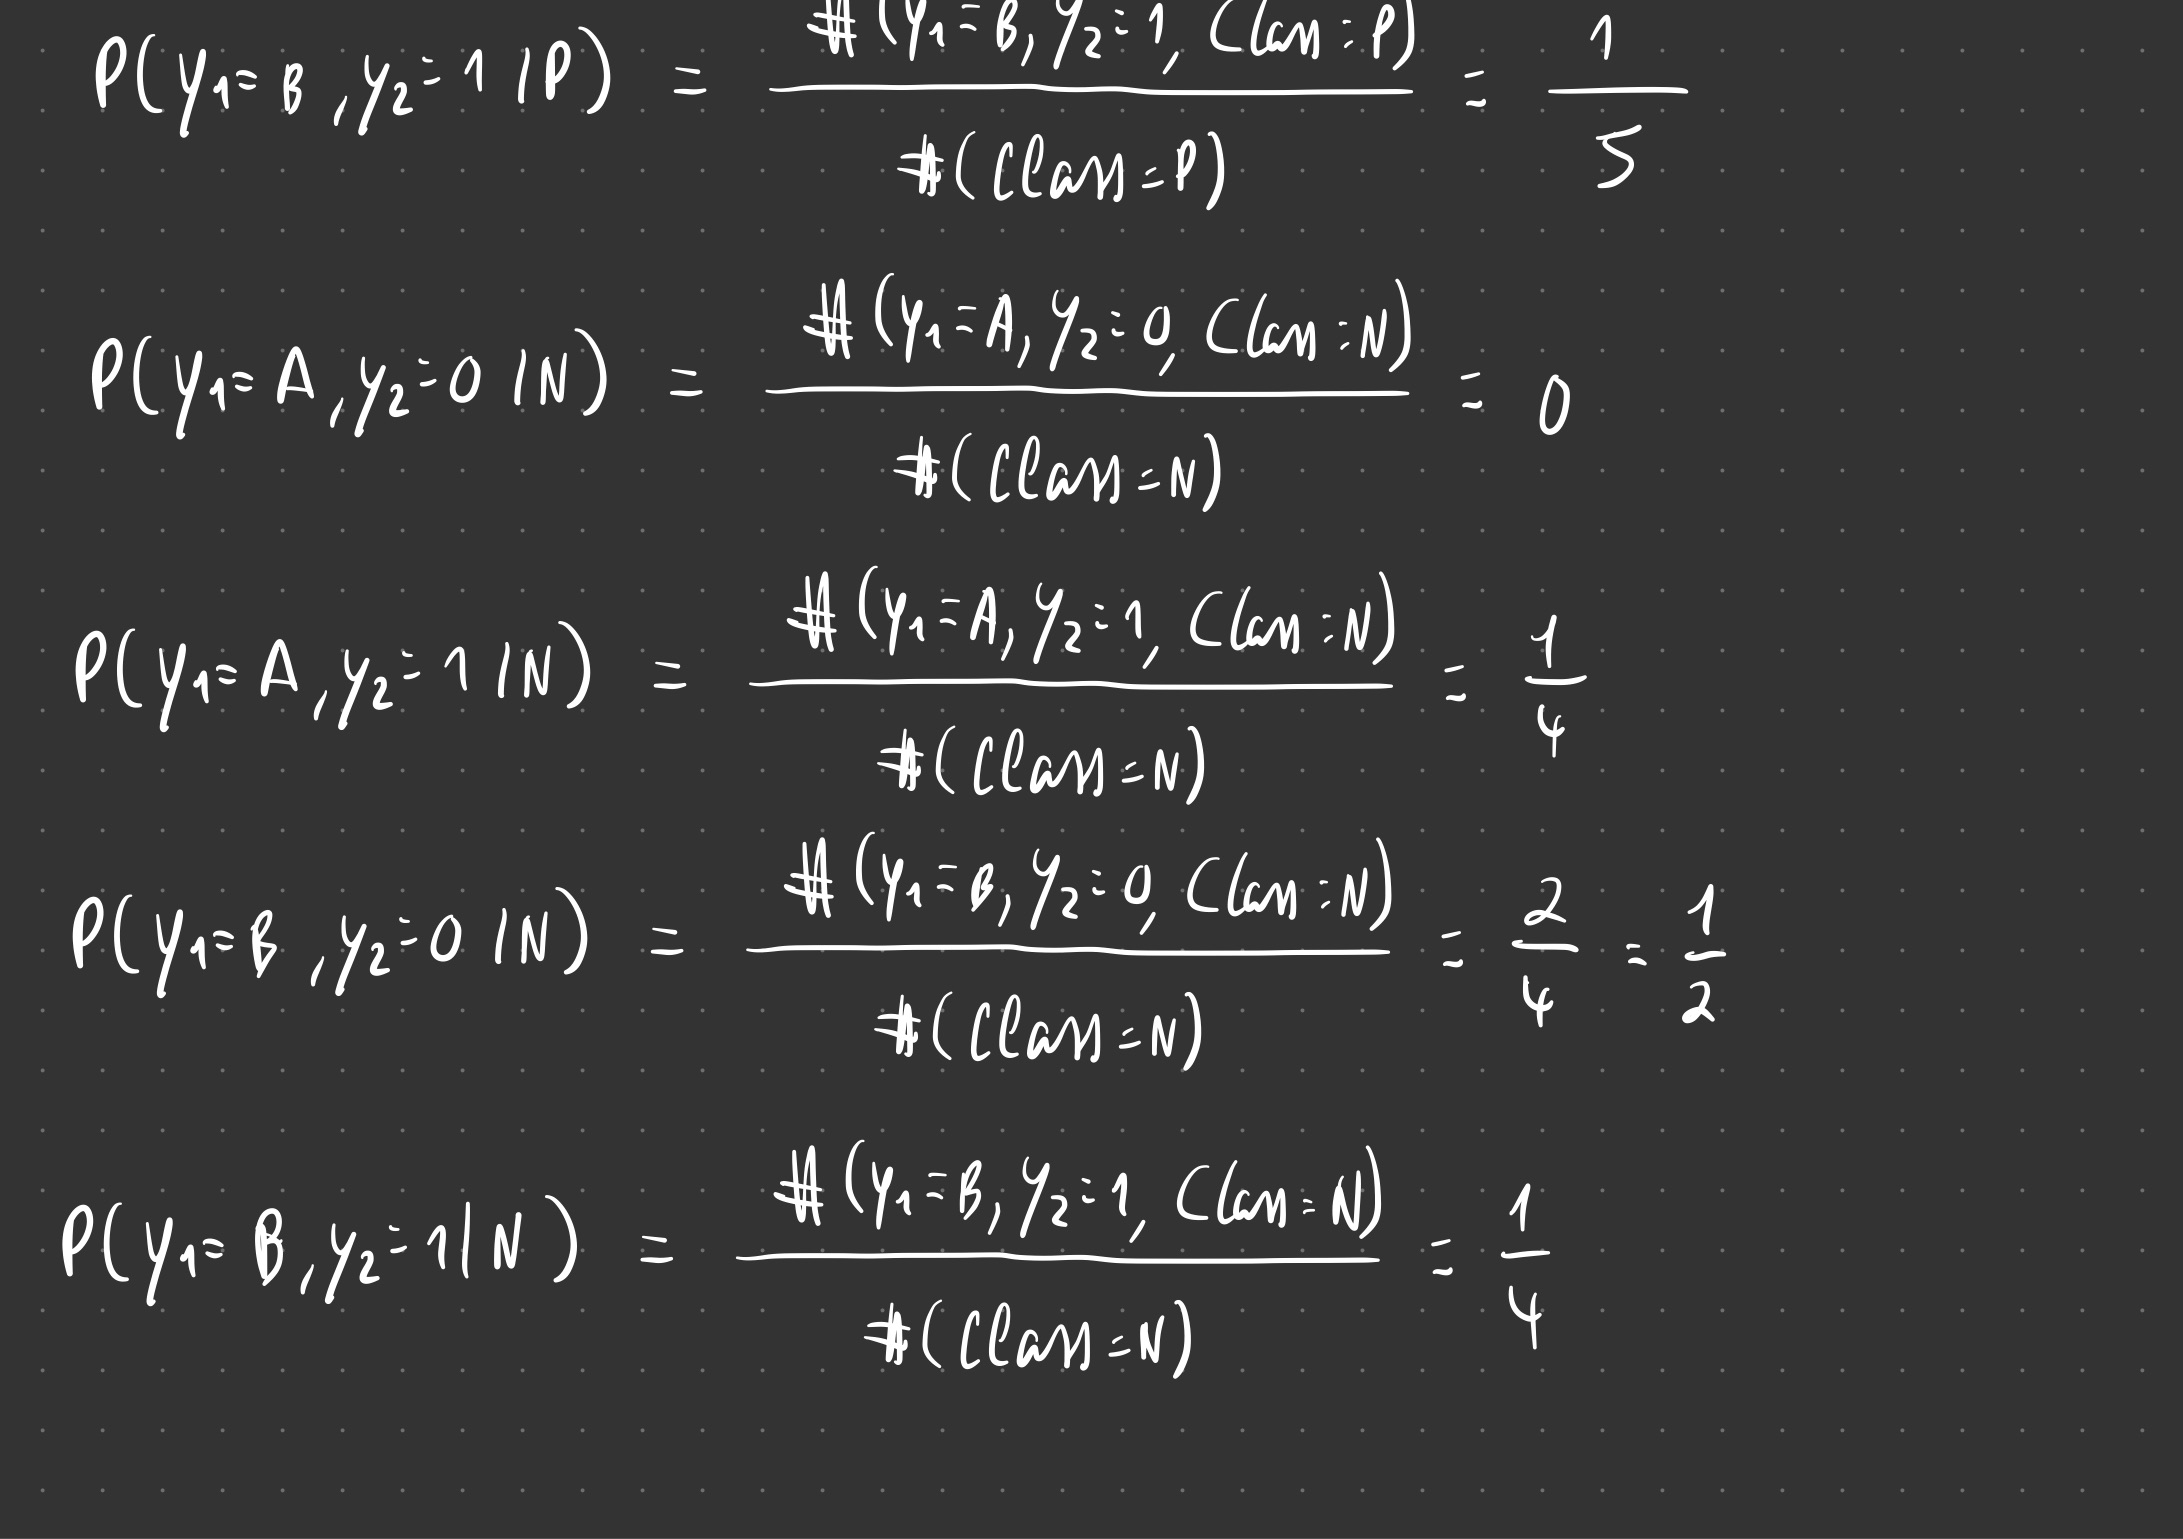 P(y₁ = B, y₂ = 1 | P) = #(y₁ = B, y₂ = 1, Class = P) / #(Class = P) = 1/5
P(y₁ = A, y₂ = 0 | N) = #(y₁ = A, y₂ = 0, Class = N) / #(Class = N) = 0
P(y₁ = A, y₂ = 1 | N) = #(y₁ = A, y₂ = 1, Class = N) / #(Class = N) = 1/4
P(y₁ = B, y₂ = 0 | N) = #(y₁ = B, y₂ = 0, Class = N) / #(Class = N) = 2/4 = 1/2
P(y₁ = B, y₂ = 1 | N) = #(y₁ = B, y₂ = 1, Class = N) / #(Class = N) = 1/4